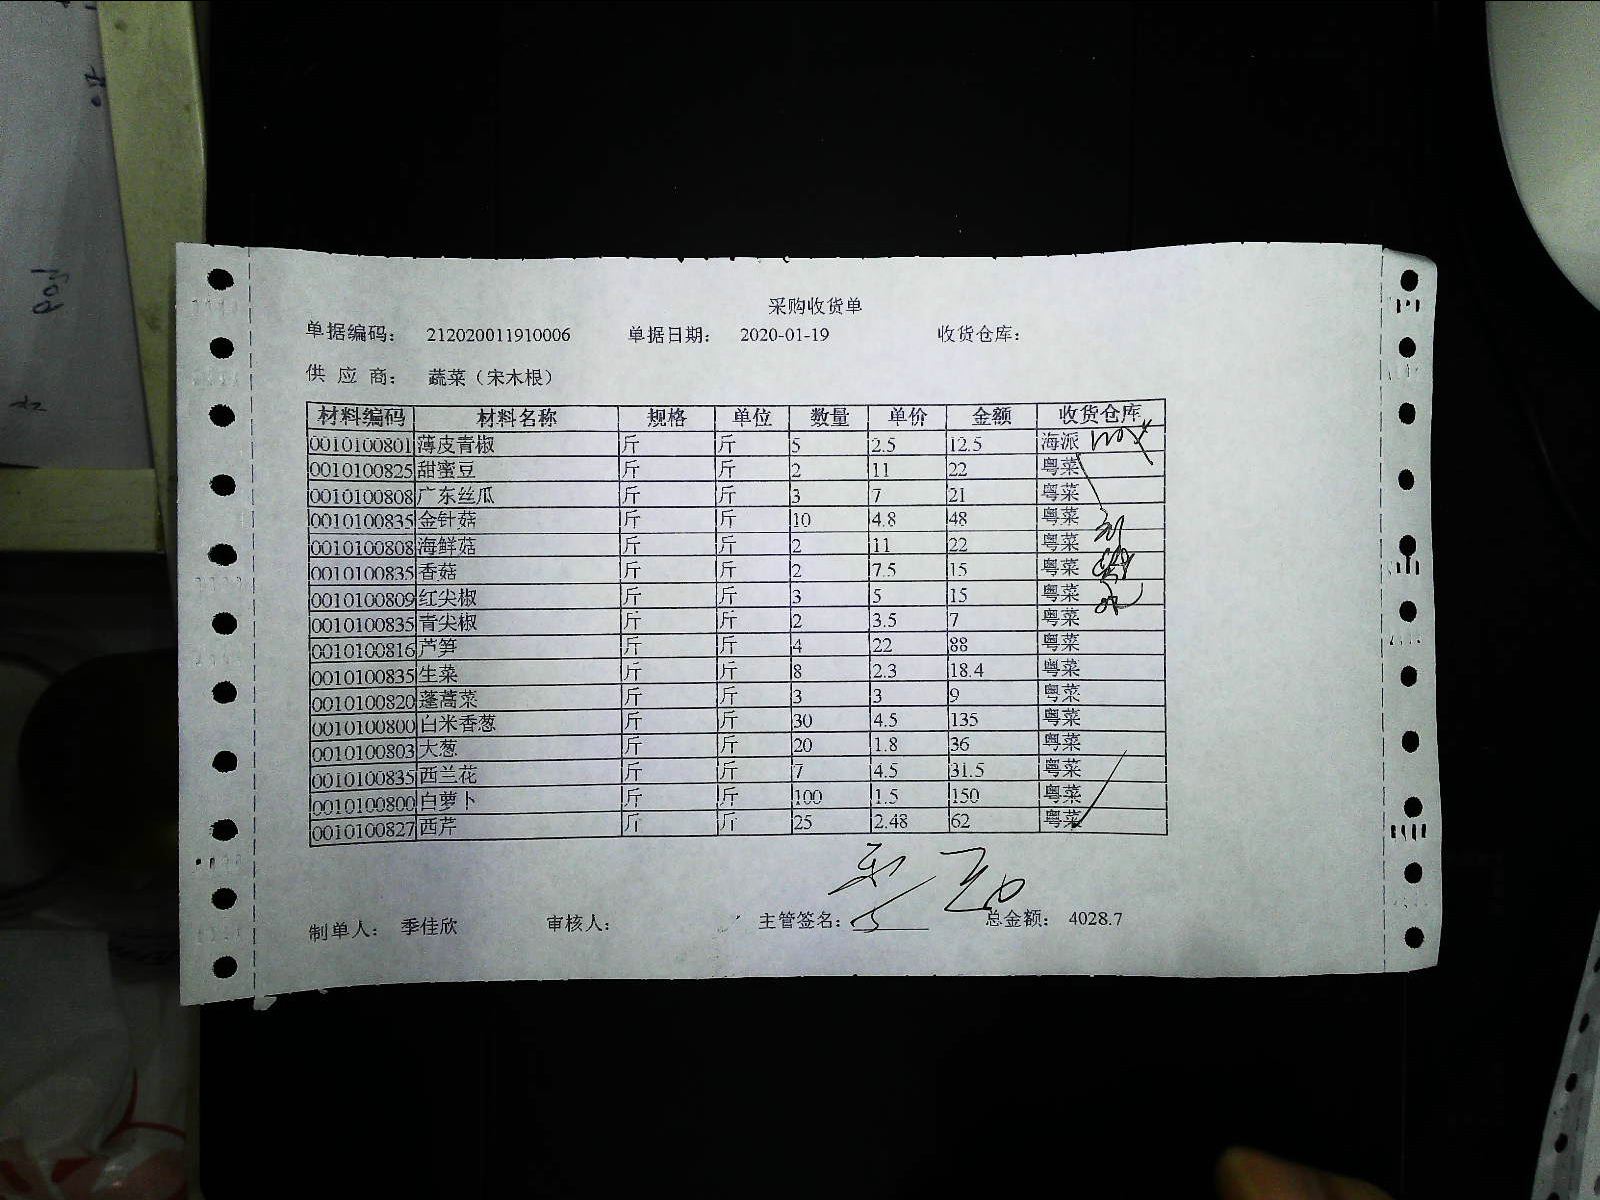 采购收货单
单据编码： 212020011910006 单据日期： 2020-01-19 收货仓库：
供 应 商： 蔬菜（宋木根）
材料编码 材料名称 规格 单位 数量 单价 金额 收货仓库
0010100801 薄皮青椒 斤 斤 5 2.5 12.5 海派
0010100825 甜蜜豆 斤 斤 2 11 22 粤菜
0010100808 广东丝瓜 斤 斤 3 7 21 粤菜
0010100835 金针菇 斤 斤 10 4.8 48 粤菜
0010100808 海鲜菇 斤 斤 2 11 22 粤菜
0010100835 香菇 斤 斤 2 7.5 15 粤菜
0010100809 红尖椒 斤 斤 3 5 15 粤菜
0010100835 青尖椒 斤 斤 2 3.5 7 粤菜
0010100816 芦笋 斤 斤 4 22 88 粤菜
0010100835 生菜 斤 斤 8 2.3 18.4 粤菜
0010100820 蓬蒿菜 斤 斤 3 3 9 粤菜
0010100800 白米香葱 斤 斤 30 4.5 135 粤菜
0010100803 大葱 斤 斤 20 1.8 36 粤菜
0010100835 西兰花 斤 斤 7 4.5 31.5 粤菜
0010100800 白萝卜 斤 斤 100 1.5 150 粤菜
0010100827 西芹 斤 斤 25 2.48 62 粤菜
制单人： 季佳欣 审核人： 主管签名： 总金额： 4028.7